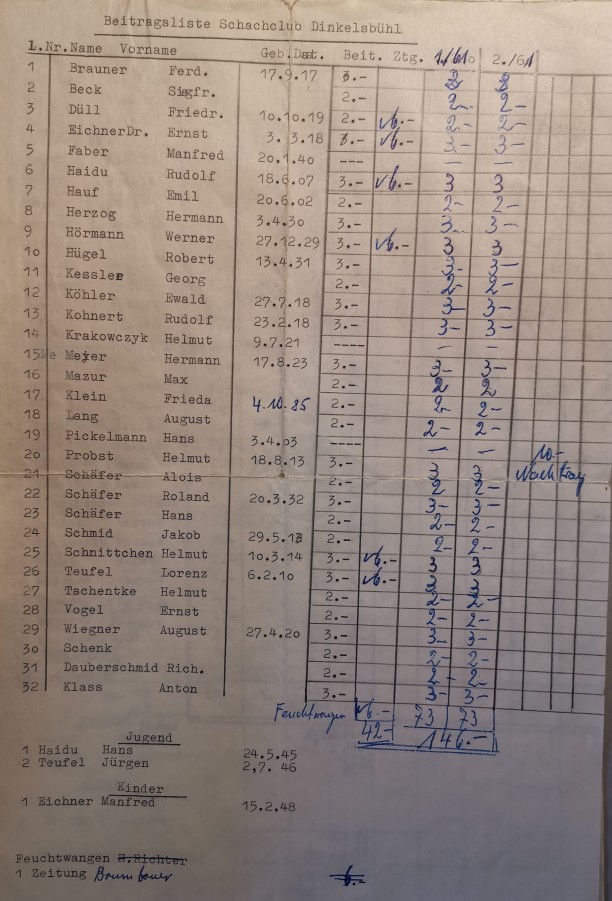 Beitragsliste Schachclub Dinkelsbühl
L.Nr. Name Vorname Geb.Dat. Beit. Ztg. 1./61 2./61
1 Brauner Ferd. 17.9.17 3.- 3 3
2 Beck Siegfr. 2.- 2.- 2-
3 Düll Friedr. 10.10.19 2.- 6.- 2- 2-
4 EichnerDr. Ernst 3. 3.18 3.- 6.- 3- 3-
5 Faber Manfred 20.1.40 --- — —
6 Haidu Rudolf 18.6.07 3.- 6.- 3 3
7 Hauf Emil 20.6.02 2.- 2- 2-
8 Herzog Hermann 3.4.30 3.- 3- 3-
9 Hörmann Werner 27.12.29 3.- 6.- 3 3
10 Hügel Robert 13.4.31 3.- 3- 3-
11 Kessler Georg 2.- 2- 2-
12 Köhler Ewald 27.7.18 3.- 3- 3-
13 Kohnert Rudolf 23.2.18 3.- 3- 3-
14 Krakowczyk Helmut 9.7.21 ---- — —
15 Meyer Hermann 17.8.23 3.- 3- 3-
16 Mazur Max 2.- 2 2
17 Klein Frieda 4.10.85 2.- 2- 2-
18 Lang August 2.- 2- 2-
19 Pickelmann Hans 3.4.03 ---- — — 10.-
20 Probst Helmut 18.8.13 3.- 3 3 Nachtrag
21 Schäfer Alois 2.- 2 2-
22 Schäfer Roland 20.3.32 3.- 3- 3-
23 Schäfer Hans 2.- 2- 2-
24 Schmid Jakob 29.5.13 2.- 2- 2-
25 Schnittchen Helmut 10.3.14 3.- 6.- 3 3
26 Teufel Lorenz 6.2.10 3.- 6.- 3 3
27 Tschentke Helmut 2.- 2- 2-
28 Vogel Ernst 2.- 2- 2-
29 Wiegner August 27.4.20 3.- 3- 3-
30 Schenk 2.- 2- 2-
31 Dauberschmid Rich. 2.- 2- 2-
32 Klass Anton 3.- 3- 3-
Feuchtwangen 6.- 73 73
42- 146.-
Jugend
1 Haidu Hans 24.5.45
2 Teufel Jürgen 2,7. 46
Kinder
1 Eichner Manfred 15.2.48
Feuchtwangen H.Richter
1 Zeitung 6.-